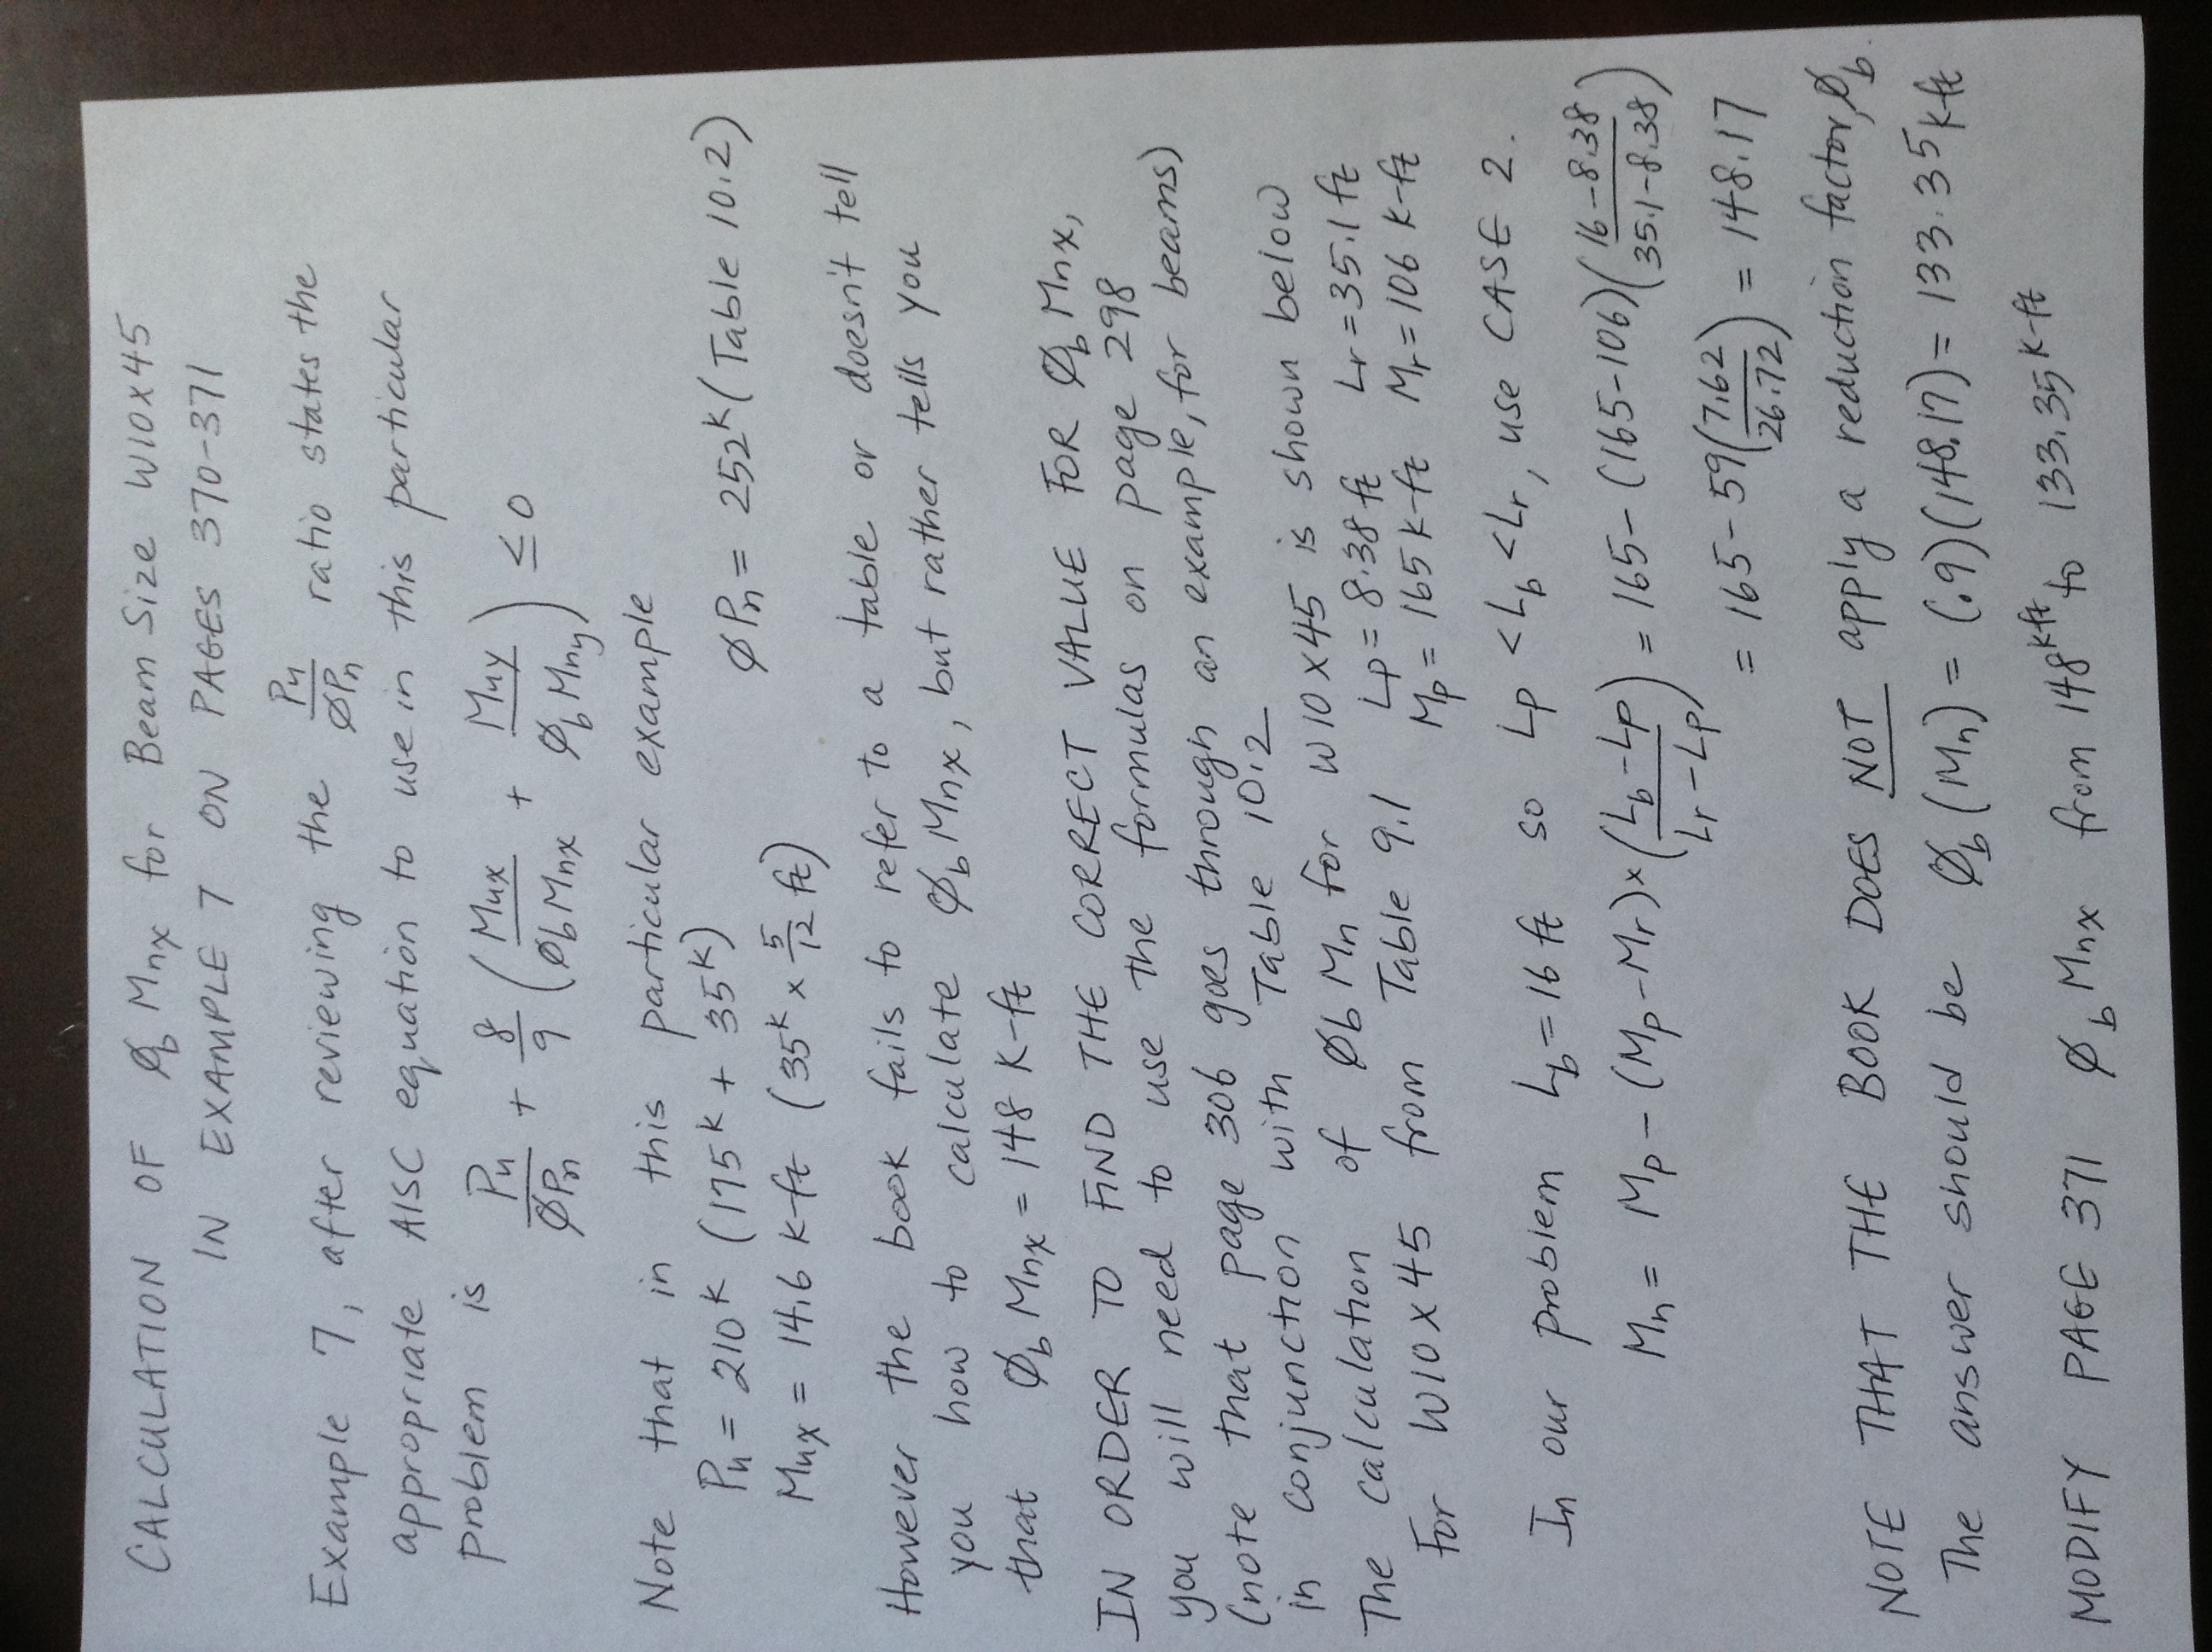 CALCULATION OF Øb Mnx for Beam Size W10x45
IN EXAMPLE 7 ON PAGES 370-371
Example 7, after reviewing the Pu/ØPn ratio states the
appropriate AISC equation to use in this particular
problem is Pu/ØPn + 8/9 (Mux/ØbMnx + Muy/ØbMny) ≤ 0
Note that in this particular example
Pu = 210k (175k + 35k) ØPn = 252k (Table 10.2)
Mux = 14.6 k-ft (35k x 5/12 ft)
However the book fails to refer to a table or doesn't tell
you how to calculate ØbMnx, but rather tells you
that Øb Mnx = 148 K-ft
IN ORDER TO FIND THE CORRECT VALUE FOR Øb Mnx,
you will need to use the formulas on page 298
(note that page 306 goes through an example, for beams)
in conjunction with Table 10.2
The calculation of Øb Mn for W10x45 is shown below
For W10x45 from Table 9.1 Lp = 8.38 ft Lr = 35.1 ft
Mp = 165 k-ft Mr = 106 k-ft
In our problem Lb = 16 ft so Lp < Lb < Lr, use CASE 2.
Mn = Mp - (Mp - Mr) x (Lb - Lp / Lr - Lp) = 165 - (165-106)(16-8.38 / 35.1-8.38)
= 165 - 59(7.62/26.72) = 148.17
NOTE THAT THE BOOK DOES NOT apply a reduction factor, Øb.
The answer should be Øb (Mn) = (.9)(148.17) = 133.35 k-ft
MODIFY PAGE 371 Øb Mnx from 148 k-ft to 133.35 k-ft